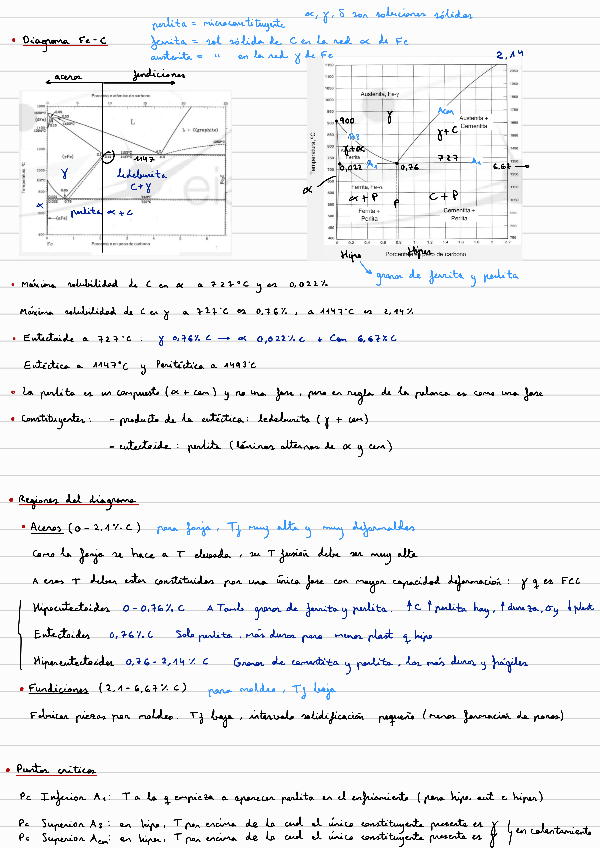 α, γ, δ son soluciones sólidas
perlita = microconstituyente
• Diagrama Fe-C
ferrita = sol sólida de C en la red α de Fe
austenita = " en la red γ de Fe
2,14
aceros
fundiciones
Austenita, Fe-γ
γ
Acm
Austenita +
Cementita
γ+C
900
A3
γ+α
Ferrita
0,022
A1
0,76
727
A1
6,67
α
Ferrita, Fe-α
α+P
P
C+P
Ferrita +
Perlita
Cementita +
Perlita
Temperatura, °C
Porcentaje en peso de carbono
Hipo
Hiper
L
L + C(grafito)
1147
γ
ledeburita
C+γ
α
perlita α+C
Fe
granos de ferrita y perlita
• Máxima solubilidad de C en α a 727°C y es 0,022%
Máxima solubilidad de C en γ a 727°C es 0,76%, a 1147°C es 2,14%
• Eutectoide a 727°C: γ 0,76% C → α 0,022% C + Cem 6,67% C
Eutéctica a 1147°C y Peritéctica a 1493°C
• La perlita es un compuesto (α + cem) y no una fase, pero en regla de la palanca es como una fase
• Constituyentes: - producto de la eutéctica: ledeburita (γ + cem)
- eutectoide: perlita (láminas alternas de α y cem)
• Regiones del diagrama
• Aceros (0-2,1% C) para forja, Tf muy alta y muy deformables
Como la forja se hace a T elevada, su T fusión debe ser muy alta
A esas T deben estar constituidos por una única fase con mayor capacidad deformación: γ q es FCC
Hipoeutectoides 0-0,76% C A Tamb granos de ferrita y perlita, ↑C ↑perlita hay, ↑dureza, σy ↓plast
Eutectoides 0,76% C Solo perlita, más duros pero menos plast q hipo
Hipereutectoides 0,76-2,14% C Granos de cementita y perlita, los más duros y frágiles
• Fundiciones (2,1-6,67% C) para moldeo, Tf baja
Fabricar piezas por moldeo. Tf baja, intervalo solidificación pequeño (menos formación de poros)
• Puntos críticos
Pc Inferior A1: T a la q empieza a aparecer perlita en el enfriamiento (para hipo, eut e hiper)
Pc Superior A3: en hipo, T por encima de la cual el único constituyente presente es γ
Pc Superior Acm: en hiper, T por encima de la cual el único constituyente presente es γ
en calentamiento